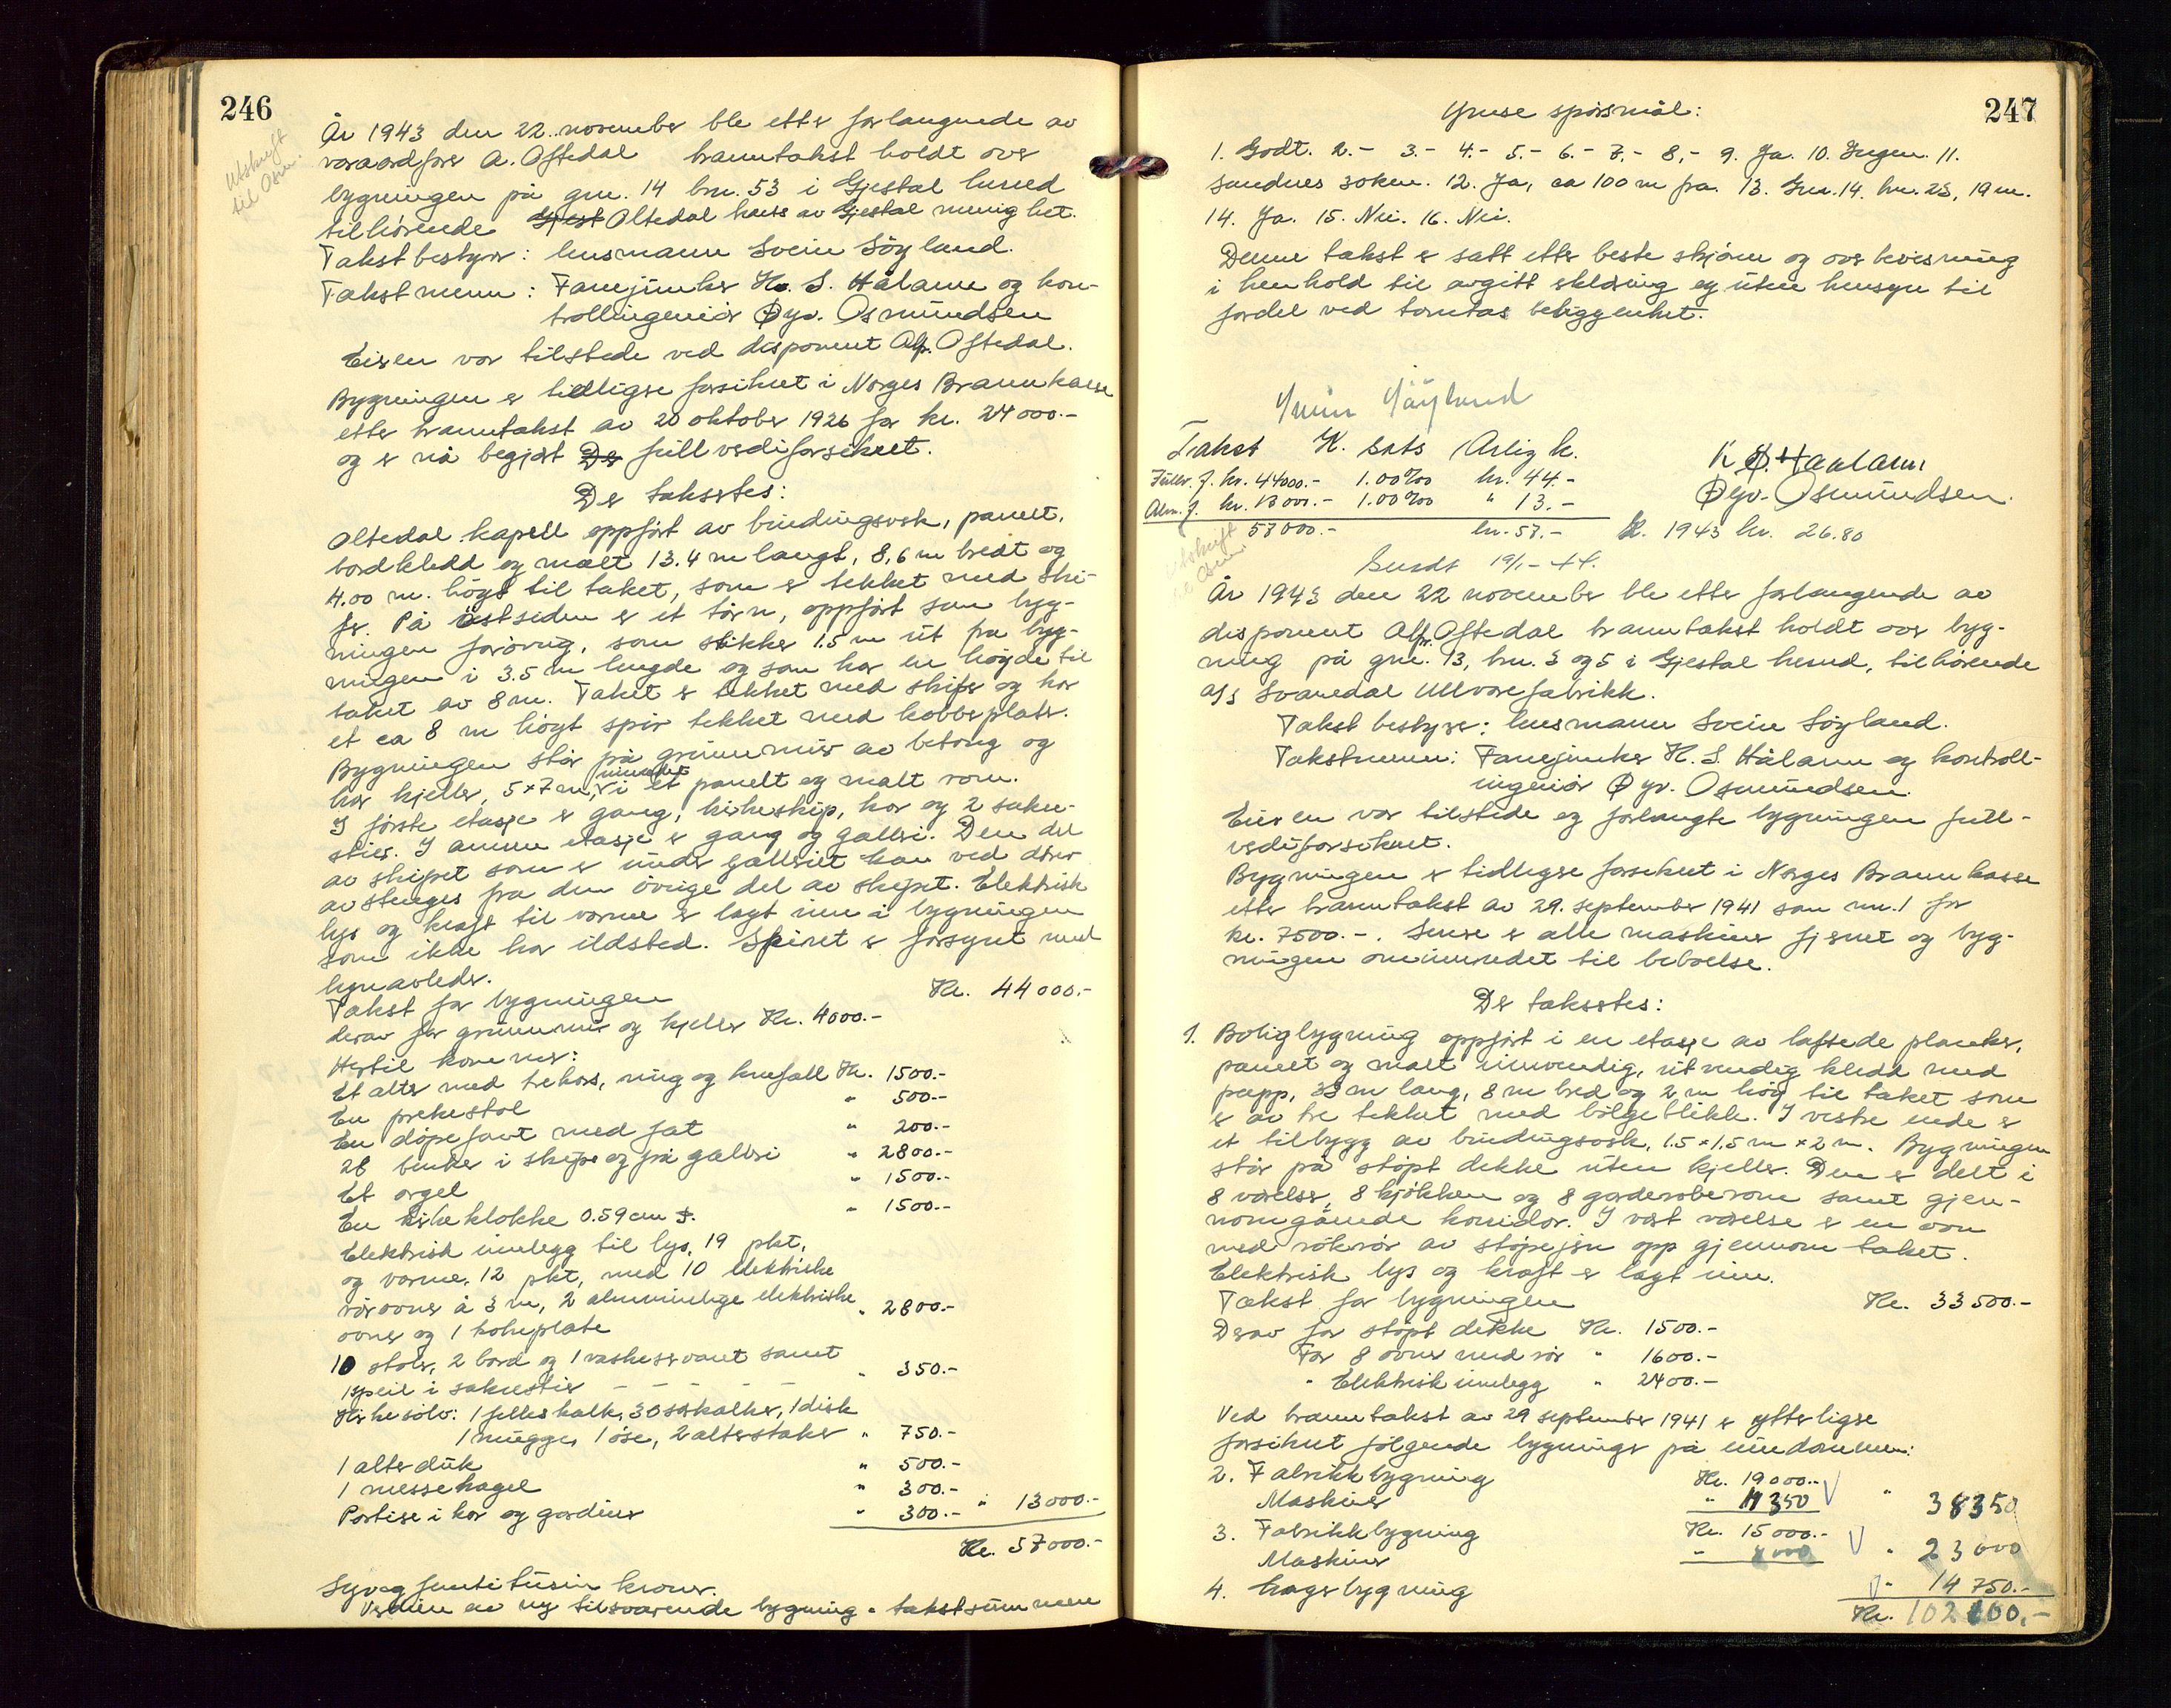 246
Utskrift
til Osm.
År 1943 den 22. november ble etter forlangende av
varaordfører A. Oftedal branntakst holdt over
bygningen på gnr. 14 bnr. 53 i Gjestal herred
tilhørende Gjest Oltedal krets av Gjestal menighet.
Takstbestyrer: lensmann Svein Söyland.
Takstmenn: Fanejunker K. S. Hålann og kon-
trollingeniör Øyv. Osmundsen
Eieren var tilstede ved disponent Alfr. Oftedal.
Bygningen er tidligere forsikret i Norges Brannkasse
etter branntakst av 20 oktober 1926 for kr. 24000.-
og er nå begjært De fullverdiforsikret.
De takseres:
Oltedal kapell oppfört av bindingsverk, panelt,
bordkledd og malt 13.4 m langt, 8,6 m bredt og
4.00 m. högt til taket, som er tekket med ski-
fer. På östsiden er et tårn, oppfört som byg-
ningen forövrig, som stikker 1.5 m ut fra byg-
ningen i 3.5 m lengde og som har en höyde til
taket av 8 m. Taket er tekket med skifer og har
et ca 8 m högt spir tekket med kobberplater.
Bygningen står på grunnmur av betong og
har kjeller, 5 × 7 m, innredet i et panelt og malt rom.
I förste etasje er gang, kirkeskip, kor og 2 sakri-
stier. I annen etasje er gang og galleri. Den del
av skipet som er under galleriet kan ved dörer
avstenges fra den övrige del av skipet. Elektrisk
lys og kraft til varme er lagt inn i bygningen
som ikke har ildsted. Spiret er forsynt med
lynavleder.
Takst for bygningen Kr. 44000.-
derav for grunnmur og kjeller Kr. 4000.-
Hertil kommer:
Et alter med trekors, ring og knefall Kr. 1500.-
En prekestol " 500.-
En döpefont med fat " 200.-
28 benker i skipe og på galleri " 2800.-
Et orgel " 1500.-
En kirkeklokke 0.59 cm " 1500.-
Elektrisk innlegg til lys, 19 pkt,
og varme, 12 pkt, med 10 elektriske
rörovner à 3 m, 2 alminnelige elektriske
ovner og 1 kokeplate " 2800.-
10 stoler, 2 bord og 1 vaskeservant samt
1 speil i sakristier - - - - - " 350.-
Kirkesölv: 1 felleskalk, 30 særkalker, 1 disk
1 mugge, 1 öse, 2 alterstaker " 750.-
1 alterduk " 500.-
1 messehagel " 300.-
Portiere i kor og gardiner " 300.- " 13000.-
Kr. 57000.-
Syv og femti tusin kroner.
Verdien av ny tilsvarende bygning = takstsummen
247
Grense spörsmål:
1. Godt. 2.- 3.- 4.- 5.- 6.- 7.- 8.- 9. Ja. 10. Ingen. 11.
Sandnes soken. 12. Ja, ca 100 m fra. 13. Gnr. 14. bnr. 23, 19 m.
14. Ja. 15. Nei. 16. Nei.
Denne takst er satt etter beste skjönn og overbevisning
i henhold til avgitt erklæring og uten hensyn til
fordel ved tomtas beliggenhet.
Svein Söyland
Takst K. sats Årlig k.
Fullv. f. kr. 44000.- 1.00‰ kr. 44.-
Alm. f. kr. 13000.- 1.00‰ " 13.-
57000.- kr. 57.- K. 1943 kr. 26.80
K. S. Haalann
Øyv. Osmundsen.
Utskrift
til Osm.
Sendt 19/1-44.
År 1943 den 22 november ble etter forlangende av
disponent Alfr. Oftedal branntakst holdt over byg-
ning på gnr. 13, bnr. 3 og 5 i Gjestal herred, tilhörende
A/s Svanedal Ullvarefabrikk.
Takst bestyrer: lensmann Svein Söyland.
Takstmenn: Fanejunker K. S. Hålann og kontroll-
ingeniör Øyv. Osmundsen.
Eieren var tilstede og forlangte bygningen full-
verdiforsikret.
Bygningen er tidligere forsikret i Norges Brannkasse
etter branntakst av 29. september 1941 som nr. 1 for
kr. 7500.-. Senere er alle maskiner fjernet og byg-
ningen ominnredet til beboelse.
De takseres:
1. Boligbygning oppfört i en etasje av laftede planker,
panelt og malt innvendig, utvendig kledd med
papp, 33 m lang, 8 m bred og 2 m höy til taket som
er av tre tekket med bölgeblikk. I vestre ende er
et tilbygg av bindingsverk, 1.5 × 1.5 m × 2 m. Bygningen
står på stöpt dekke uten kjeller. Den er delt i
8 værelser, 8 kjökken og 8 garderoberom samt gjen-
nomgående korridor. I vært værelse er en ovn
med rökrör av stöpejern opp gjennom taket.
Elektrisk lys og kraft er lagt inn.
Takst for bygningen Kr. 33500.-
Derav for stöpt dekke Kr. 1500.-
For 8 ovner med rör " 1600.-
" Elektrisk innlegg " 2400.-
Ved branntakst av 29 september 1941 er ytterligere
forsikret fölgende bygninger på eiendommen:
2. Fabrikkbygning Kr. 19000.-
Maskiner " 19350 V " 38350
3. Fabrikkbygning Kr. 15000.-
Maskiner " 8000 V " 23000
4. Lagerbygning V " 14750.-
Kr. 102600.-